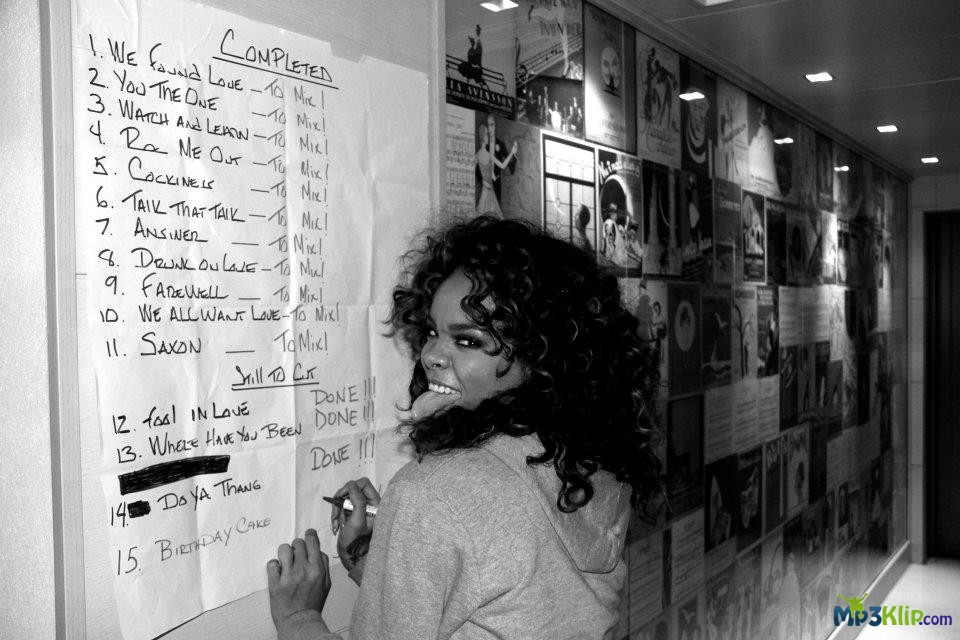 COMPLETED
1. WE FOUND LOVE — TO MIX!
2. YOU THE ONE — TO MIX!
3. WATCH AND LEARN — TO MIX!
4. ROC ME OUT — TO MIX!
5. COCKINESS — TO MIX!
6. TALK THAT TALK — TO MIX!
7. ANSWER — TO MIX!
8. DRUNK ON LOVE — TO MIX!
9. FAREWELL — TO MIX!
10. WE ALL WANT LOVE — TO MIX!
11. SAXON — TO MIX!
STILL TO CUT
12. FOOL IN LOVE DONE!!!
13. WHERE HAVE YOU BEEN DONE!!!
14. DO YA THANG DONE!!!
15. BIRTHDAY CAKE
SVENSSON
Mp3Klip.com